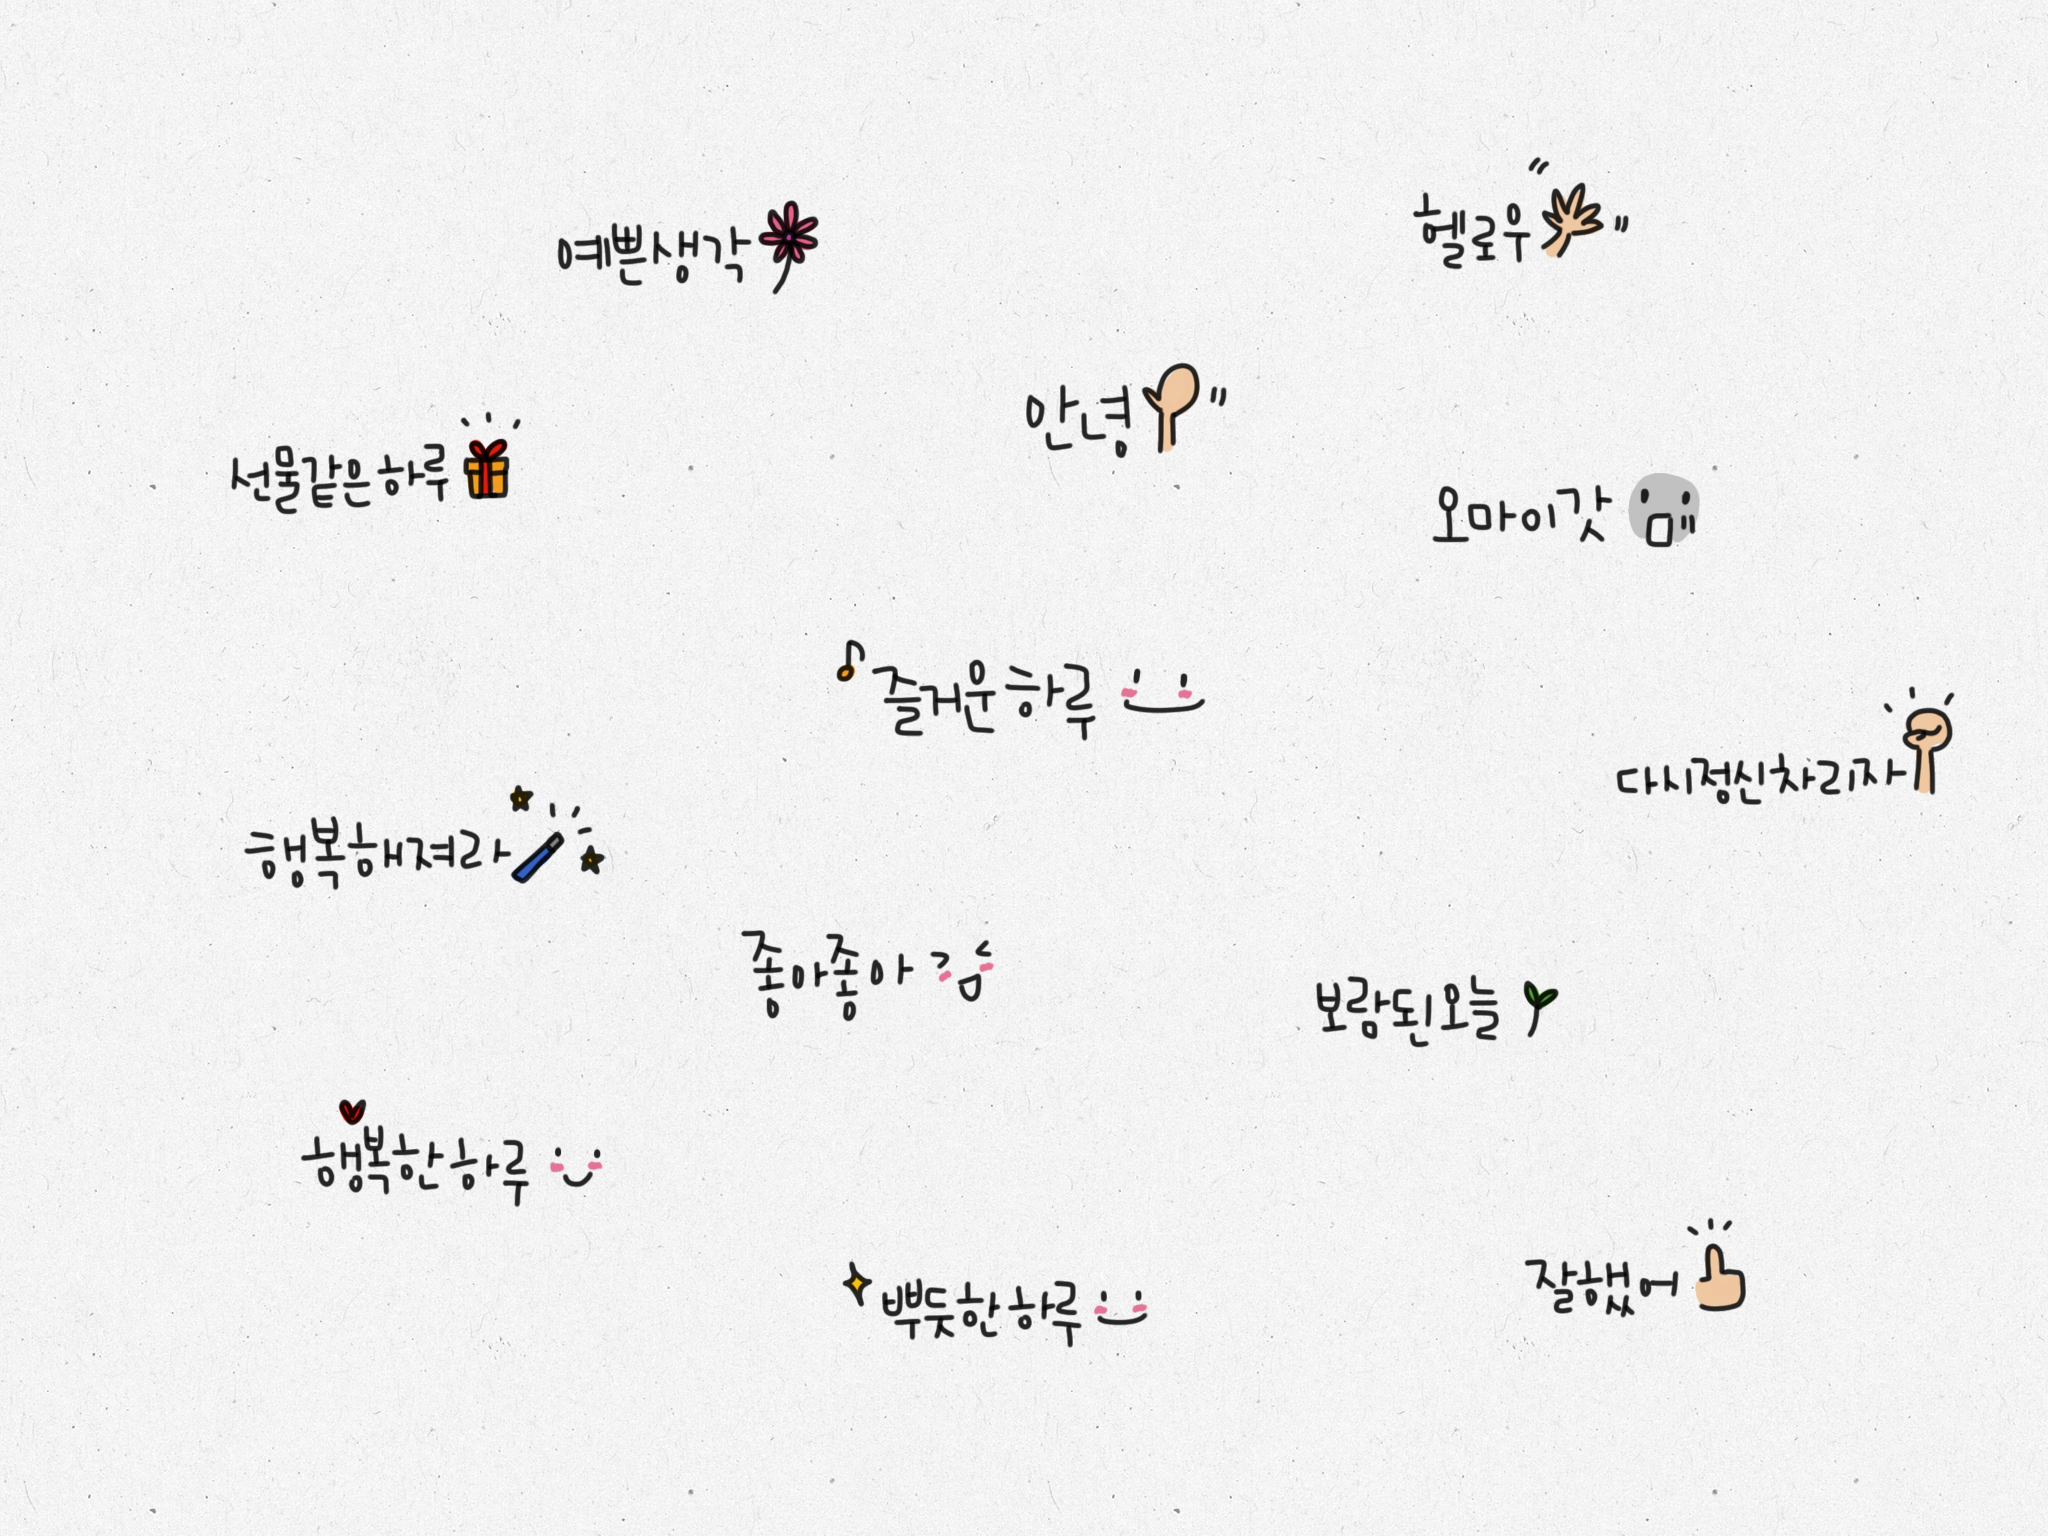 예쁜생각
헬로우
안녕
선물같은 하루
오마이갓
즐거운 하루
다시정신차리자
행복해져라
좋아좋아
보람된오늘
행복한 하루
뿌듯한 하루
잘했어